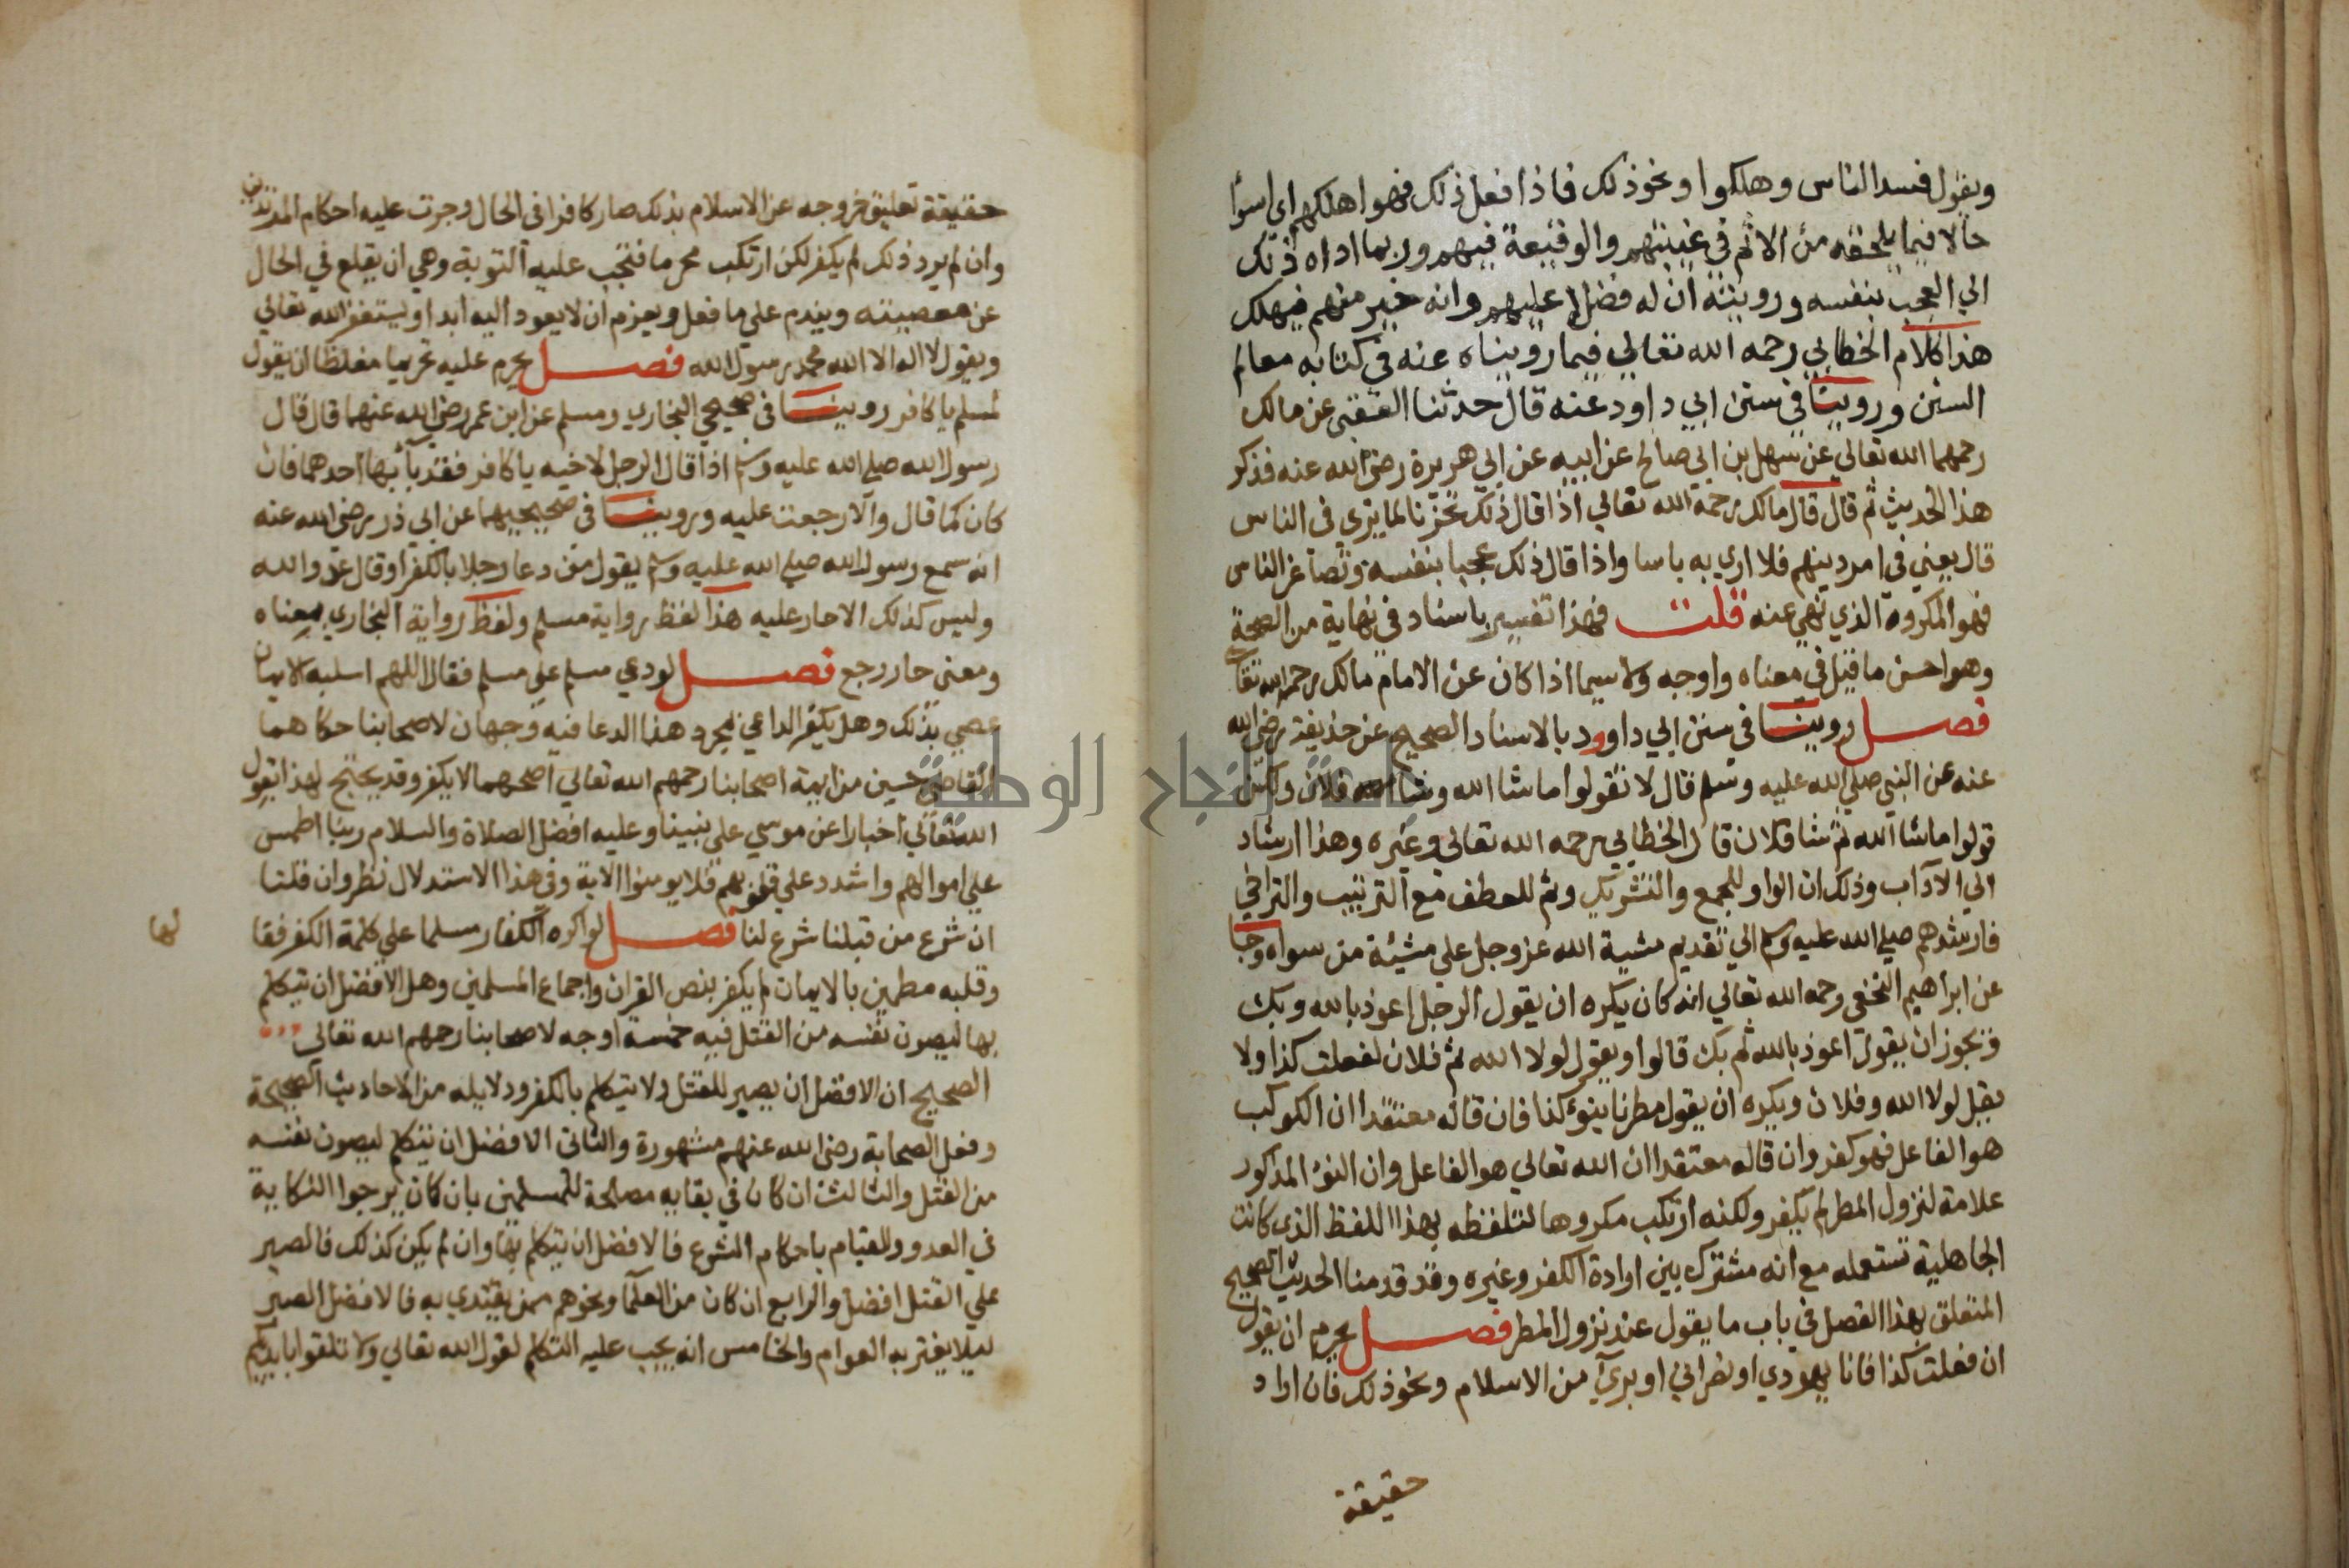 ويقول فسد الناس وهلكوا ونحو ذلك فاذا فعل ذلك فهو اهلكهم اي اسوأ
حالا فيما يلحقه من الاثم في غيبتهم والوقيعة فيهم وربما اداه ذلك
الي العجب بنفسه ورويته ان له فضلا عليهم وانه خير منهم فيهلك
هذا كلام الخطابي رحمه الله تعالي فيما رويناه عنه في كتابه معالم
السنن وروينا في سنن ابي داود عنه قال حدثنا القعنبى عن مالك
رحمهما الله تعالي عن سهل بن ابي صالح عن ابيه عن ابي هريرة رضي الله عنه فذكر
هذا الحديث ثم قال قال مالك رحمه الله تعالي اذا قال ذلك تحزنا لما يري في الناس
قال يعني في امر دينهم فلا اري به باسا واذا قال ذلك عجبا بنفسه وتصاغرا للناس
فهو المكروه الذي نهي عنه قلت فهذا تفسير باسناد في نهاية من الصحة
وهو احسن ما قيل في معناه واوجه ولاسيما اذا كان عن الامام مالك رحمه الله تعالي
فصل روينا في سنن ابي داوود بالاسناد الصحيح عن حذيفة رضي الله
عنه عن النبي صلي الله عليه وسلم قال لا تقولوا ما شا الله وشا فلان ولكن
قولوا ما شا الله ثم شا فلان قال الخطابي رحمه الله تعالي وغيره وهذا ارشاد
الي الاداب وذلك ان الواو للجمع والتشريك وثم للعطف مع الترتيب والتراخي
فارشدهم صلي الله عليه وسلم الي تقديم مشية الله عز وجل علي مشيئة من سواه وجا
عن ابراهيم النخعي رحمه الله تعالي انه كان يكره ان يقول الرجل اعوذ بالله وبك
ويجوز ان يقول اعوذ بالله ثم بك قالوا ويقول لولا الله ثم فلان لفعلت كذا ولا
يقل لولا الله وفلان ويكره ان يقول مطرنا بنوء كذا فان قاله معتقدا ان الكوكب
هو الفاعل فهو كفر وان قاله معتقدا ان الله تعالي هو الفاعل وان النوء المذكور
علامة لنزول المطر لم يكفر ولكنه ارتكب مكروها لتلفظه بهذا اللفظ الذي كانت
الجاهلية تستعمله مع انه مشترك بين ارادة الكفر وغيره وقد قدمنا الحديث الصحيح
المتعلق بهذا الفصل في باب ما يقول عند نزول المطر فصل يحرم ان يقول
ان فعلت كذا فانا يهودي او نصراني او بريء من الاسلام ونحو ذلك فان اراد
حقيقة
حقيقة تعليق خروجه عن الاسلام بذلك صار كافرا في الحال وجرت عليه احكام المرتدين
وان لم يرد ذلك لم يكفر لكن ارتكب محرما فتجب عليه التوبة وهي ان يقلع في الحال
عن معصيته ويندم علي ما فعل ويعزم ان لا يعود اليه ابدا ويستغفر الله تعالي
ويقول لا اله الا الله محمد رسول الله فصل يحرم عليه تحريما مغلظا ان يقول
لمسلم يا كافر روينا في صحيحي البخاري ومسلم عن ابن عمر رضي الله عنهما قال قال
رسول الله صلي الله عليه وسلم اذا قال الرجل لاخيه يا كافر فقد بآء بها احدهما فان
كان كما قال والا رجعت عليه وروينا في صحيحيهما عن ابي ذر رضي الله عنه
انه سمع رسول الله صلي الله عليه وسلم يقول من دعا رجلا بالكفر او قال عدو الله
وليس كذلك الا حار عليه هذا لفظ رواية مسلم ولفظ رواية البخاري بمعناه
ومعني حار رجع فصل لو دعي مسلم علي مسلم فقال اللهم اسلبه الايمان
عصي بذلك وهل يكفر الداعي بمجرد هذا الدعا فيه وجهان لاصحابنا حكاهما
القاضي حسين من ايمة اصحابنا رحمهم الله تعالي اصحهما لا يكفر وقد يحتج لهذا بقول
الله تعالي اخبارا عن موسي علي نبينا وعليه افضل الصلاة والسلام ربنا اطمس
علي اموالهم واشدد علي قلوبهم فلا يومنوا الاية وفي هذا الاستدلال نظر وان قلنا
ان شرع من قبلنا شرع لنا فصل لو اكره الكفار مسلما علي كلمة الكفر فقا
لها
وقلبه مطمين بالايمان لم يكفر بنص القران واجماع المسلمين وهل الافضل ان يتكلم
بها ليصون نفسه من القتل فيه خمسة اوجه لاصحابنا رحمهم الله تعالي
الصحيح ان الافضل ان يصير للقتل ولا يتكلم بالكفر ودلايله من الاحاديث الصحيحة
وفعل الصحابة رضي الله عنهم مشهورة والثاني الافضل ان يتكلم ليصون نفسه
من القتل والثالث ان كان في بقايه مصلحة للمسلمين بان كان يرجوا النكاية
في العدو والقيام باحكام الشرع فالافضل ان يتكلم بها وان لم يكن كذلك فالصبر
علي القتل افضل والرابع ان كان من العلمآ ونحوهم ممن يقتدي به فالافضل الصبر
ليلا يغتر به العوام والخامس انه يجب عليه التكلم لقول الله تعالي ولا تلقوا بايديكم
جامعة النجاح الوطنية